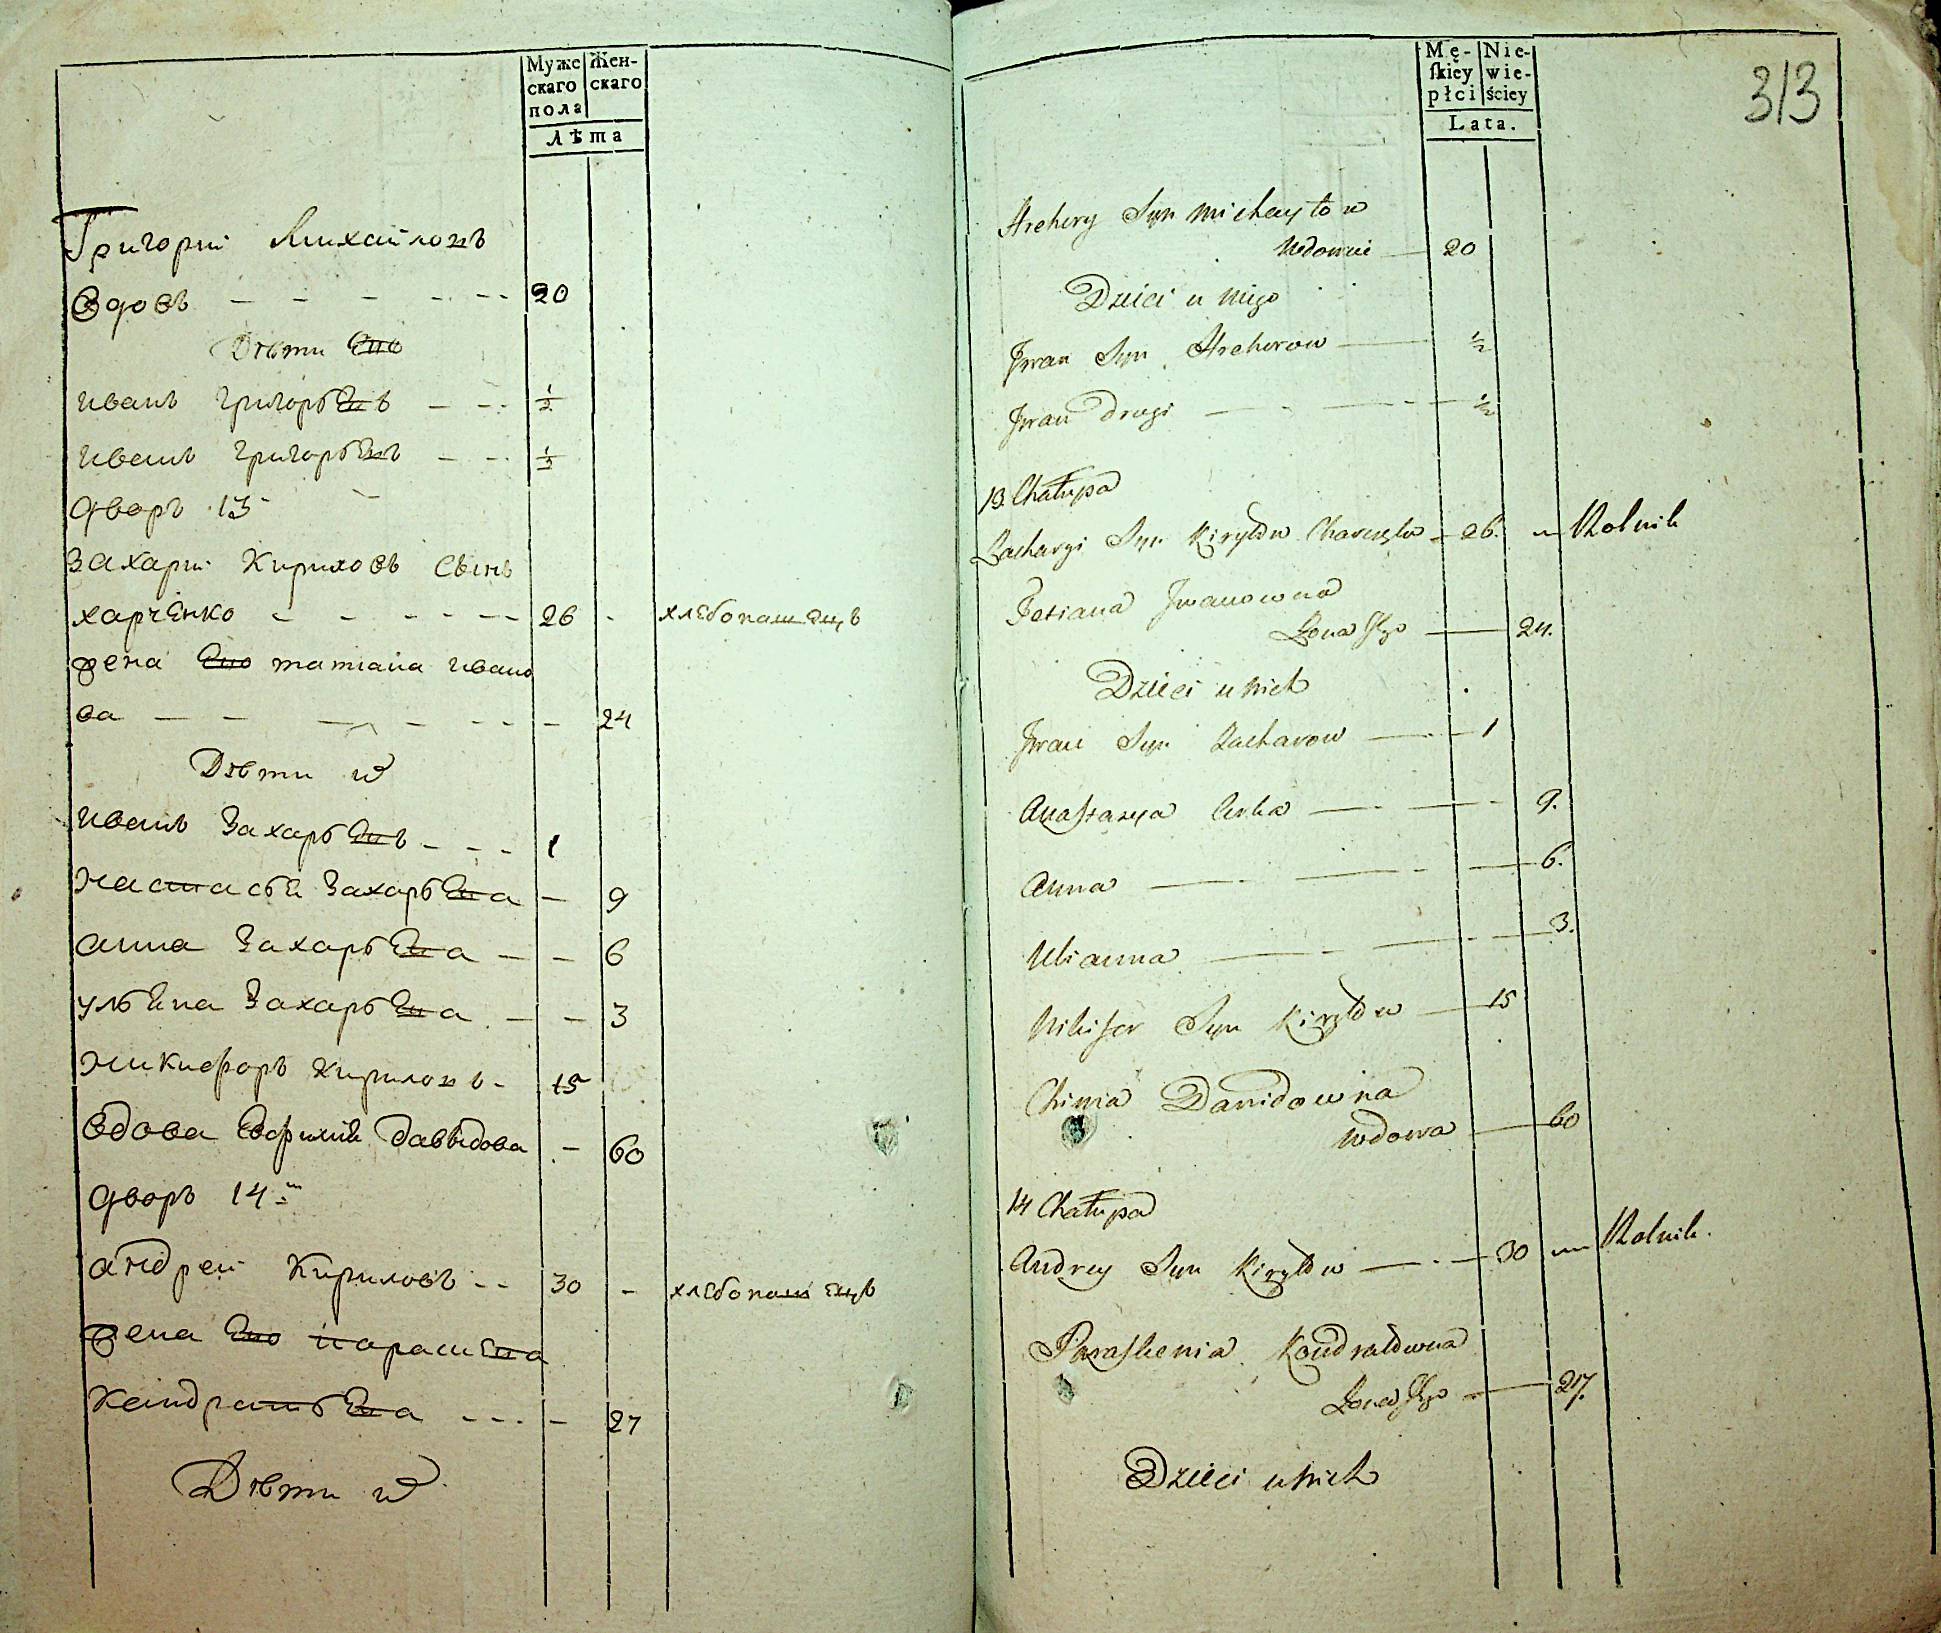 Муже
скаго
пола
Жен-
скаго
Лѣта
Григорій Михайловъ
вдовъ 20
Дѣти Его
иванъ григорьЕвъ ½
иванъ григорьЕвъ ½
дворъ 13
захарій Кириловъ сынъ
харчЕнко 26 - хлЕбопашЕцъ
жена Его татіана ивано
ва - 24
Дѣти ихъ
иванъ ЗахарьЕвъ 1
настасья ЗахарьЕва - 9
анна ЗахарьЕва - 6
ульяна ЗахарьЕва - 3
никифоръ кириловъ 15
вдова Давыдова - 60
дворъ 14
андрей Кириловъ 30 - хлЕбопашЕцъ
жена Его
КандратьЕва - 27
Дѣти ихъ
Mę-
ſkiey
płci
Nie-
wie-
ściey
Lata.
313
Hrehory Syn Michayłow
Wdowiec 20
Dzieci u niego
Jwan Syn Hrehorow ½
Jwan Drugi ½
13 Chałupa
Zacharyi Syn Kiryłow Charczenko 26. Rolnik
Tetiana Jwanowna
Żona Jego 24.
Dzieci u nich
Jwan Syn Zacharow 1
Anastazya Corka 9.
Anna 6.
Ulianna 3.
Nikifor Syn Kiryłow 15
Chima Danidowna
wdowa 60
14 Chałupa
Andrey Syn Kiryłow 30 Rolnik.
Paraskewia Kondratowna
Żona Jego 27.
Dzieci u nich